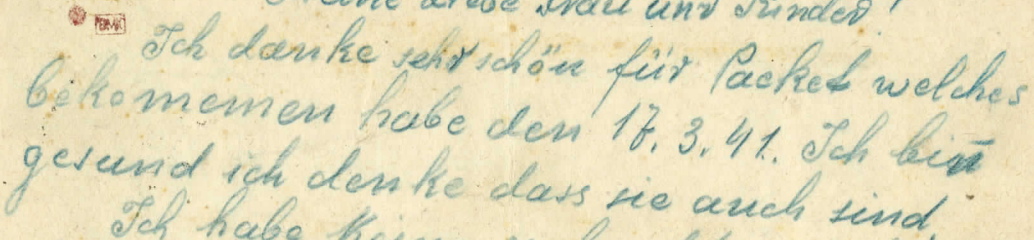 Meine liebe Frau und Kinder!
Ich danke sehr schön für Packet welches
bekomemen habe den 17. 3. 41. Ich bin
gesund ich denke dass sie auch sind
Ich habe